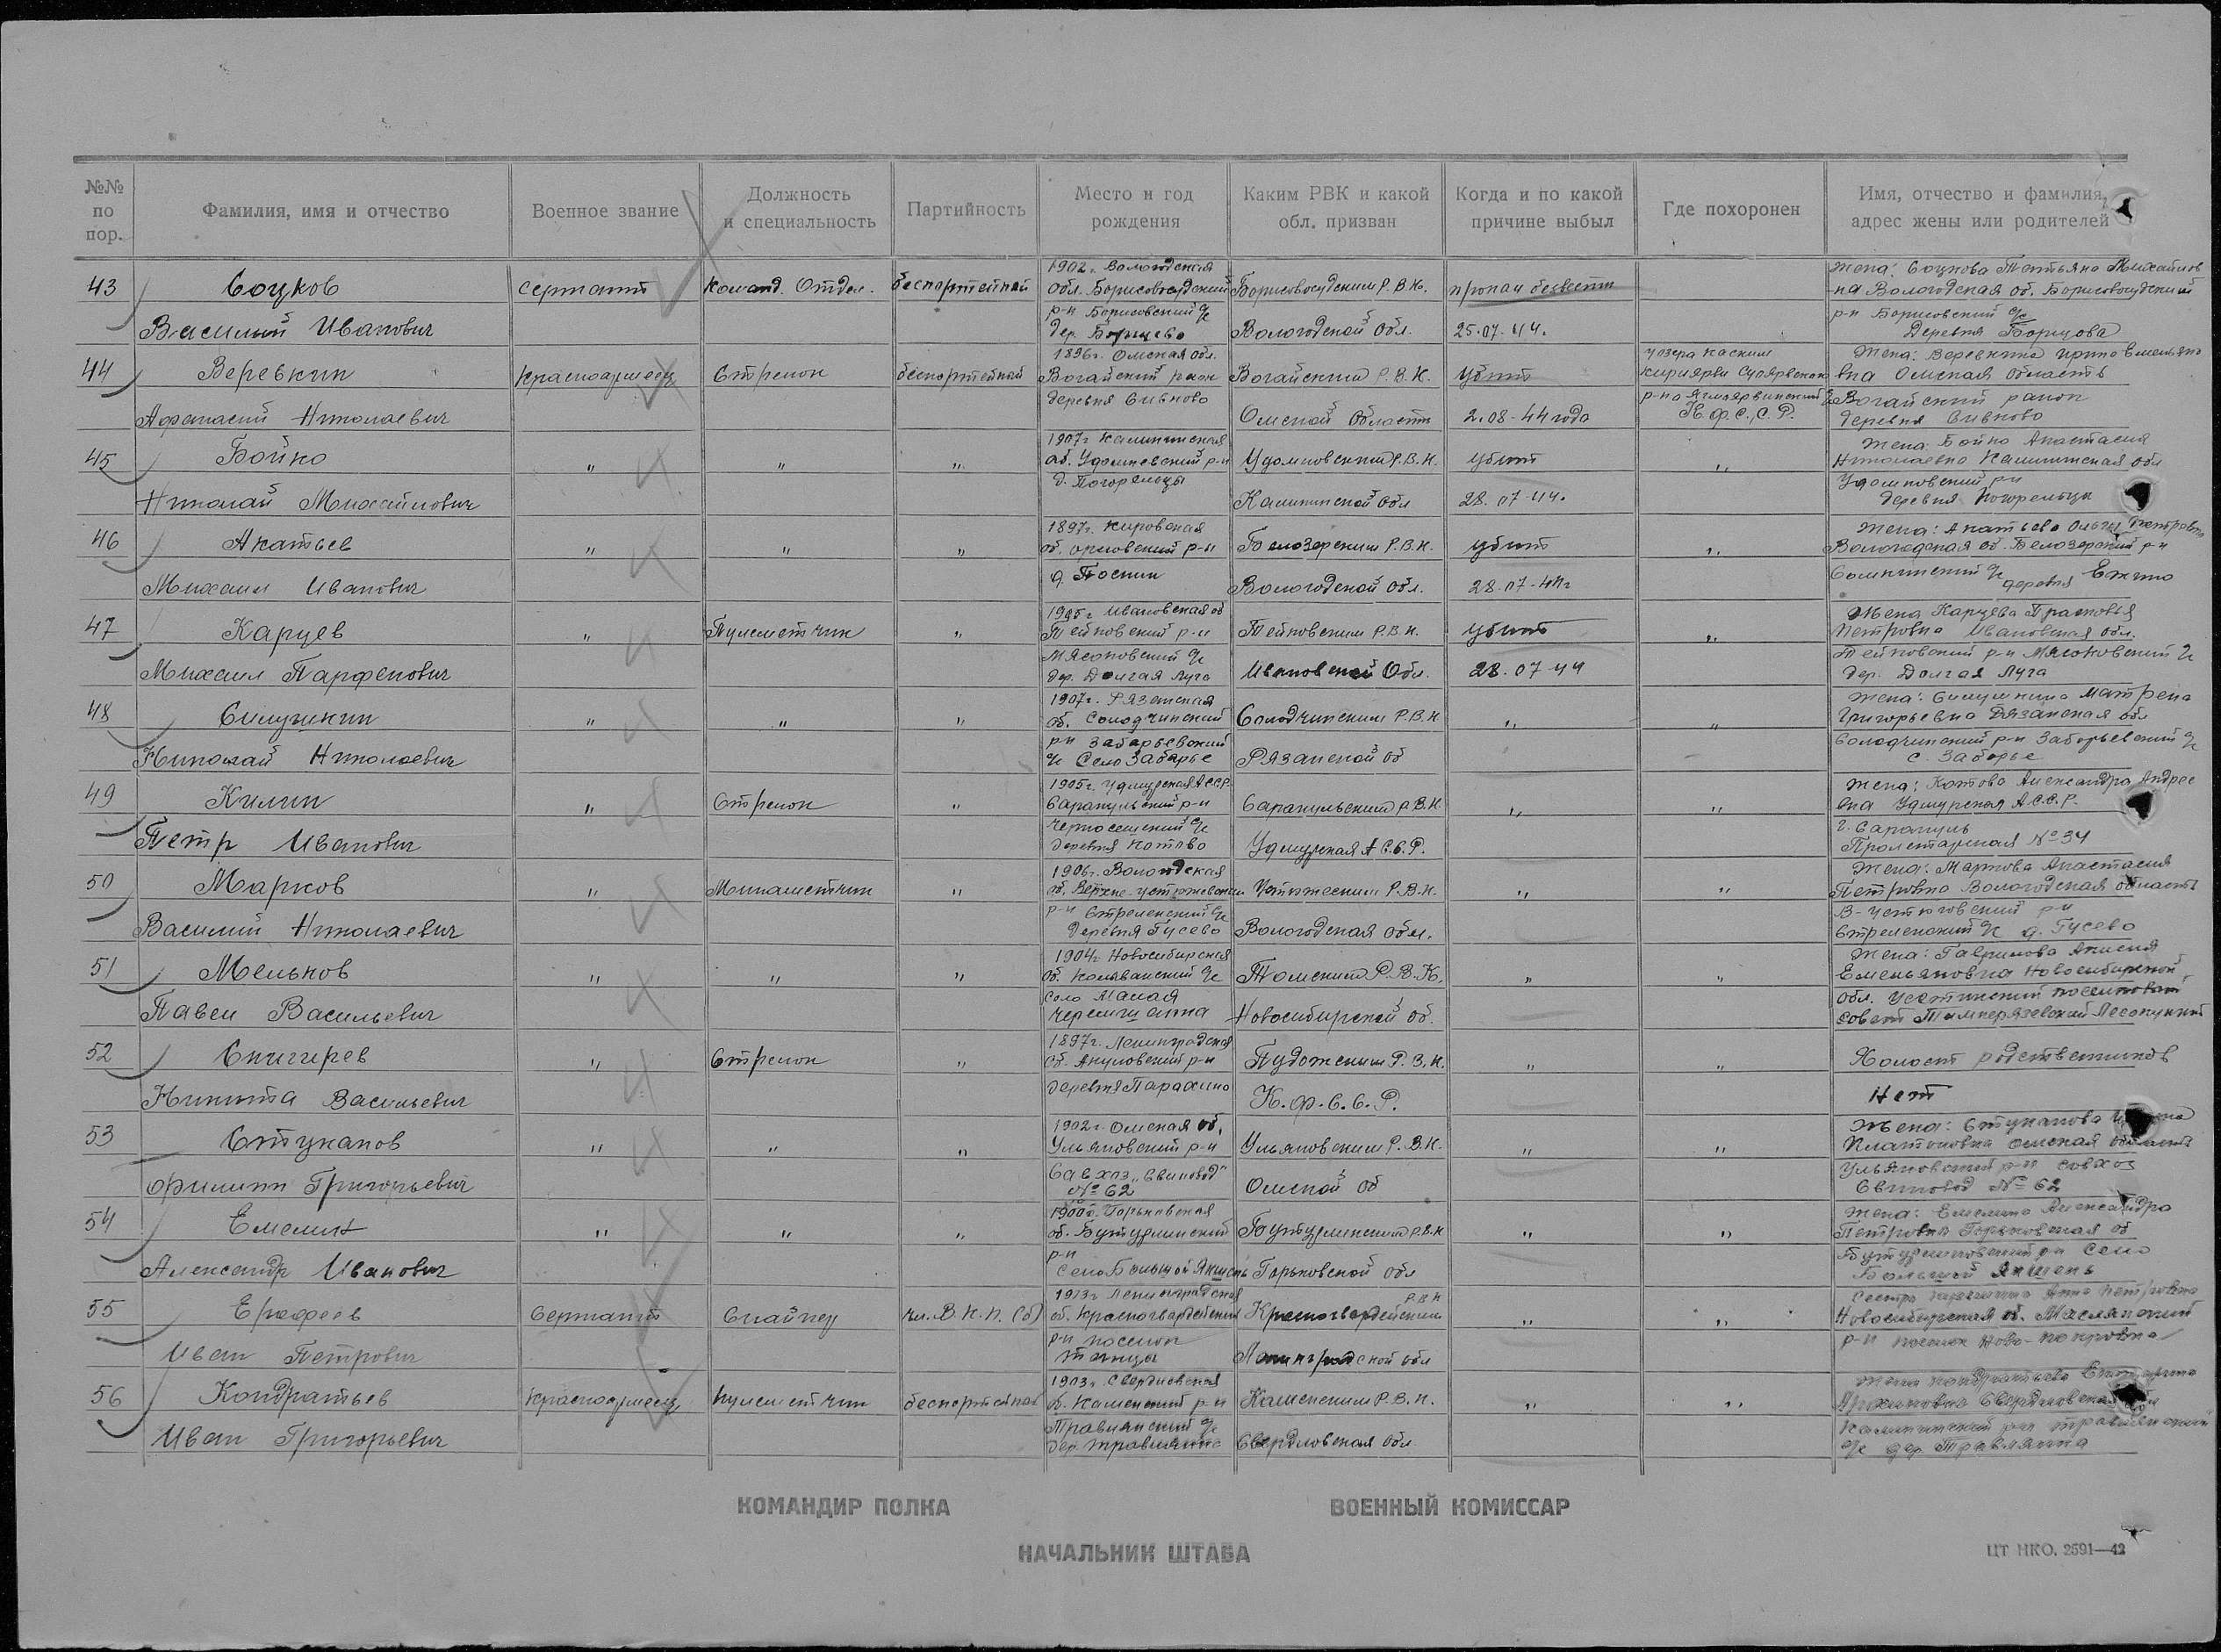 №№ по пор.
Фамилия, имя и отчество
Военное звание
Должность и специальность
Партийность
Место и год рождения
Каким РВК и какой обл. призван
Когда и по какой причине выбыл
Где похоронен
Имя, отчество и фамилия, адрес жены или родителей
43
Соцков
Василий Иванович
Сержант
Команд. Отдел.
беспартейный
1902г. Вологодская
обл. Борисовосудский
р-н Борисовский с/с
дер. Борщево
Борисовосудским Р.В.К.
Вологодской обл.
пропал безвести
25.07.44.
Жена: Соцкова Татьяна Михайлов
-на Вологодская об. Борисовосудский
р-н Борисовский с/с
Деревня Борщова
44
Веревкин
Афанасий Николаевич
Красноармеец
Стрелок
беспартейный
1896г. Омская обл.
Вагайский район
деревня Сивково
Вагайским Р.В.К.
Омской Области
убит
2.08-44 года
у озера
р-на
К.Ф.С.С.Р.
Жена: Веревкина Ирина Емельяно
вна Омская область
Вагайский район
деревня Сивково
45
Бойко
Николай Михайлович
"
"
"
1907г Калининская
об. Удомлевский р-н
д. Погорельцы
Удомловским Р.В.К.
Калининской обл
убит
28.07-44.
"
Жена: Бойко Анастасия
Николаевна Калининская обл
Удомловский р-н
деревня Погорельцы
46
Акатьев
Михаил Иванович
"
"
"
1897г. Кировская
об. орловский р-н
Белозерским Р.В.К.
Вологодской обл.
убит
28.07-44г
"
Жена: Акатьева Ольга Петровна
Вологодская об. Белозерский р-н
деревня
47
Карцев
Михаил Парфенович
"
Пулеметчик
"
1905г Ивановская об
Тейковский р-н
Мясоковский с/с
дер. Долгая Луга
Тейковским Р.В.К.
Ивановской Обл.
убит
28.07-44
"
Жена Карцева Прасковья
Петровна Ивановская обл.
Тейковский р-н Мясоковский с/с
дер. Долгая Луга
48
Силушкин
Николай Николаевич
"
"
"
1907г. Рязанская
об. Солодчинский
р-н Заборьевский
с/с Село Заборье
Солодчинским Р.В.К
Рязанской об
"
"
Жена: Силушкина Матрена
Григорьевна Рязанская обл
Солодчинский р-н Заборьевский с/с
с. Заборье
49
Килин
Петр Иванович
"
Стрелок
"
1905г. Удмурская АССР
Сарапульский р-н
деревня Котово
Сарапульским Р.В.К
Удмурская А.С.С.Р.
"
"
Жена: Котова Александра Андрее
вна Удмурская А.С.С.Р.
г. Сарапуль
Пролетарская № 34
50
Марков
Василий Николаевич
"
Минаметчик
"
1906г. Вологодская
р-н Стреленский с/с
деревня Гусево
Устюжеским Р.В.К.
Вологодская обл.
"
"
Жена: Маркова Анастасия
Петровна Вологодская область
В-Устюговский р-н
Стреленский с/с д. Гусево
51
Мельков
Павел Васильевич
"
"
"
1904г Новосибирская
об. Калыванский с/с
село Малая
Томским Р.В.К.
Новосибирской об.
"
"
Жена: Гаврилова Аксенья
Емельяновна Новосибирской
обл.
совет Тимирязевский Лесопункт
52
Снигирев
Никита Васильевич
"
Стрелок
"
1897г. Ленинградская
об. Акуловский р-н
деревня Парахино
Пудожским Р.В.К.
К.Ф.С.С.Р.
"
"
Холост родственников
Нет
53
Стуканов
Филипп Григорьевич
"
"
"
1902г. Омская об.
Ульяновский р-н
Савхоз „Свиновод"
№ 62
Ульяновским Р.В.К.
Омской об
"
"
Жена: Стуканова
Платоновна Омская область
Ульяновский р-н совхоз
Свиновод № 62
54
Емелин
Александр Иванович
"
"
"
1900г. Горьковская
об. Бутурлинский
р-н
село Большой Якшень
Бутурлинским Р.В.К
Горьковской обл
"
"
Жена: Емелина Александра
Петровна Горьковская об
Бутурлиновский р-н Село
Большой Якшень
55
Ерофеев
Иван Петрович
Сержант
Снайпер
чл. В.К.П.(б)
1913г Ленинградская
об. Красногвардейский
р-н поселок
Красногвардейским Р.В.К
Ленинградской обл
"
"
Сестра Анна Петровна
Новосибирская об. Маслянский
р-н поселок Ново-Покровка
56
Кондратьев
Иван Григорьевич
Красноармеец
пулеметчик
беспартейный
1903г. Свердловская
об. Каменский р-н
Травянский с/с
дер. Травянка
Каменским Р.В.К.
Свердловская обл
"
"
Жена Кондратьева Екатерина
Свердловская
с/с дер. Травянка
КОМАНДИР ПОЛКА
ВОЕННЫЙ КОМИССАР
НАЧАЛЬНИК ШТАБА
ЦТ НКО. 2591—42